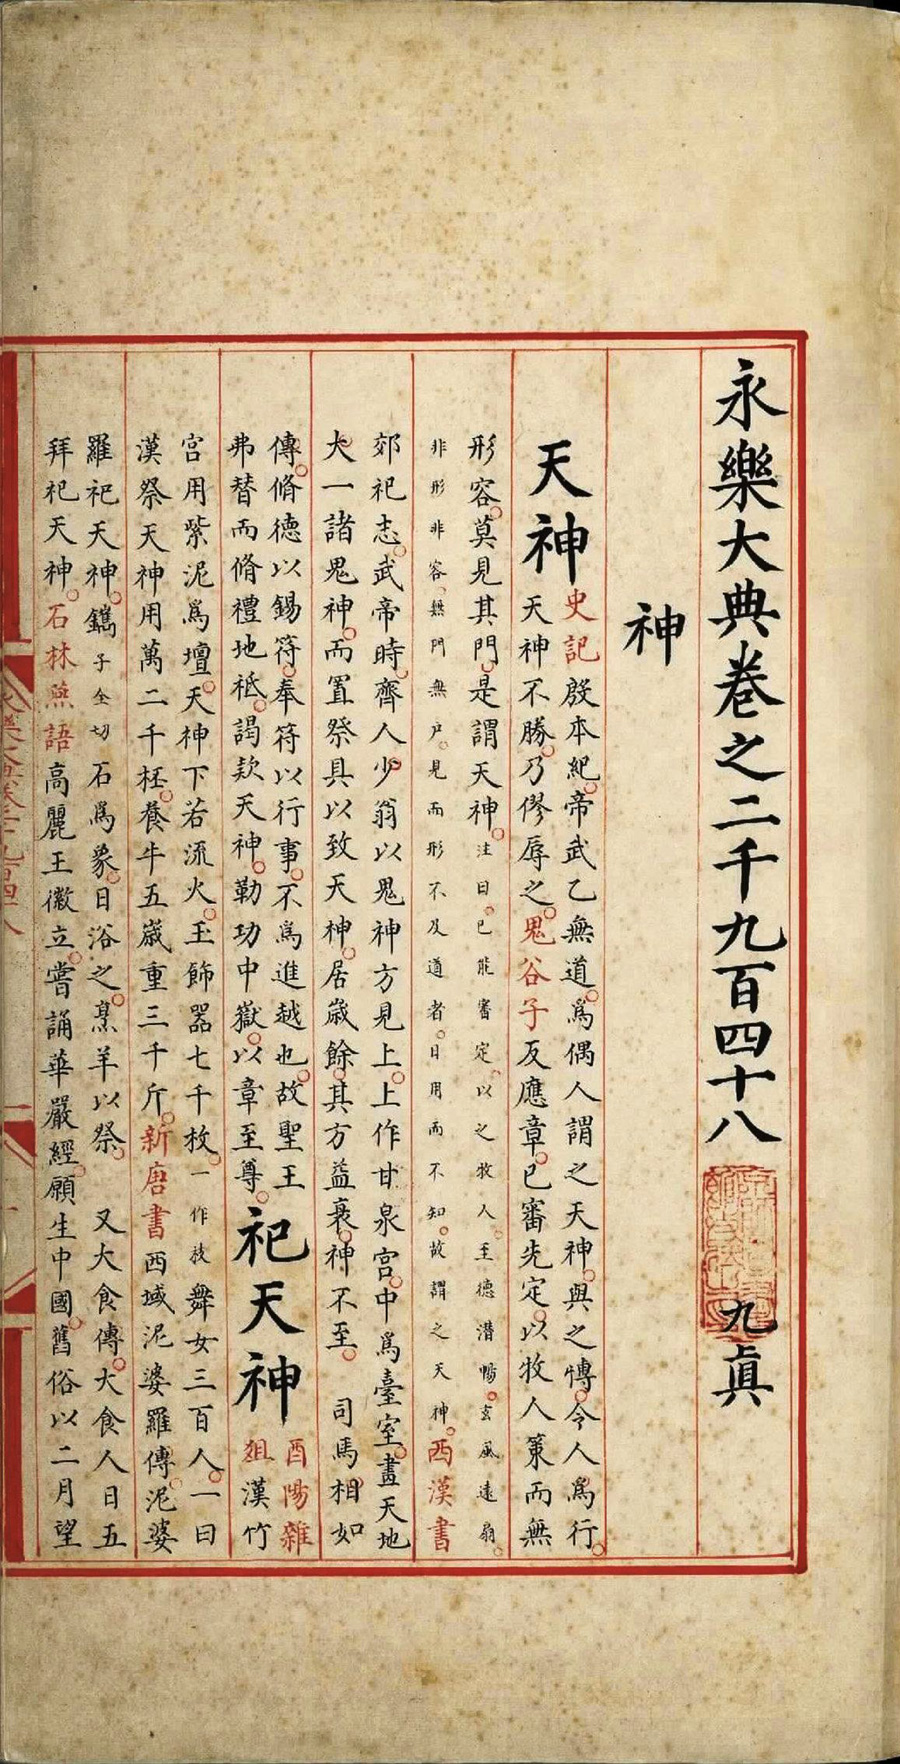 永樂大典卷之二千九百四十八 九眞
神
天神
史記殷本紀帝武乙無道爲偶人謂之天神與之博令人爲行
天神不勝乃僇辱之鬼谷子反應章已審先定以牧人策而無
形容莫見其門是謂天神注曰已能審定以之牧人至德潛暢玄風遠扇
非形非容無門無戶見而形不及道者日用而不知故謂之天神西漢書
郊祀志武帝時齊人少翁以鬼神方見上上作甘泉宮中爲臺室畫天地
大一諸鬼神而置祭具以致天神居歲餘其方益衰神不至 司馬相如
傳脩德以錫符奉符以行事不爲進越也故聖王
弗替而脩禮地祇謁款天神勒功中嶽以章至尊
祀天神
酉陽雜
俎漢竹
宮用紫泥爲壇天神下若流火玉飾器七千枚一作技舞女三百人一曰
漢祭天神用萬二千柸養牛五歲重三千斤新唐書西域泥婆羅傳泥婆
羅祀天神鐫子全切石爲象日浴之烹羊以祭 又大食傳大食人日五
拜祀天神石林燕語高麗王徽立嘗誦華嚴經願生中國舊俗以二月望